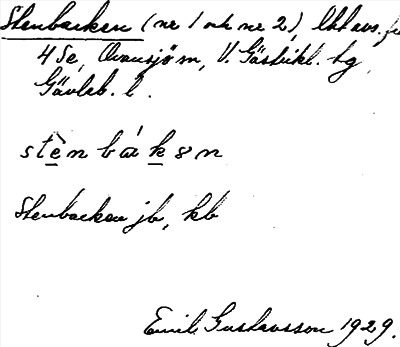 Stenbacken (nr 1 och nr 2), lht avs. fr.
4 Se, Ovansjö sn, V. Gästrikl. tg,
Gävleb. l.
stènbákən
Stenbacken jb, kb
Emil Gustavsson 1929.